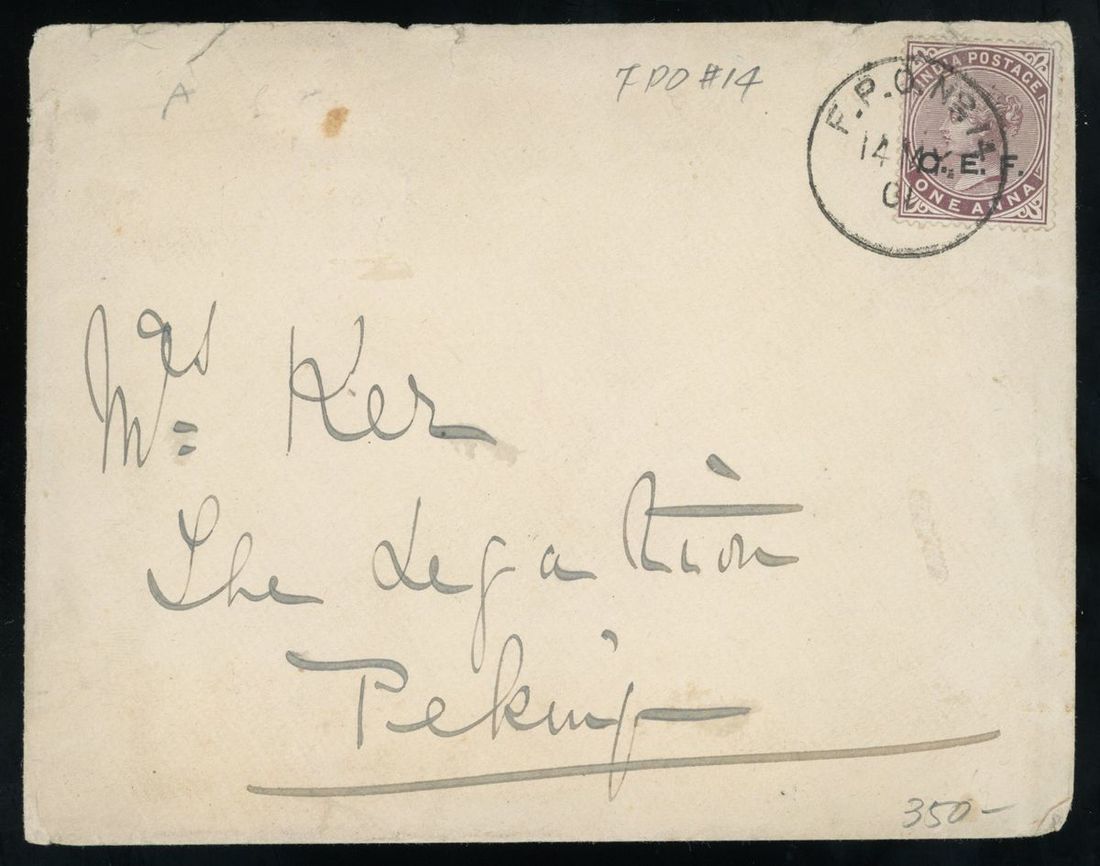 FPO #14
INDIA POSTAGE
F.P.O. Nº 14
14 MY
01
C. E. F.
ONE ANNA
Mrs Ker
The Legation
Peking
350-